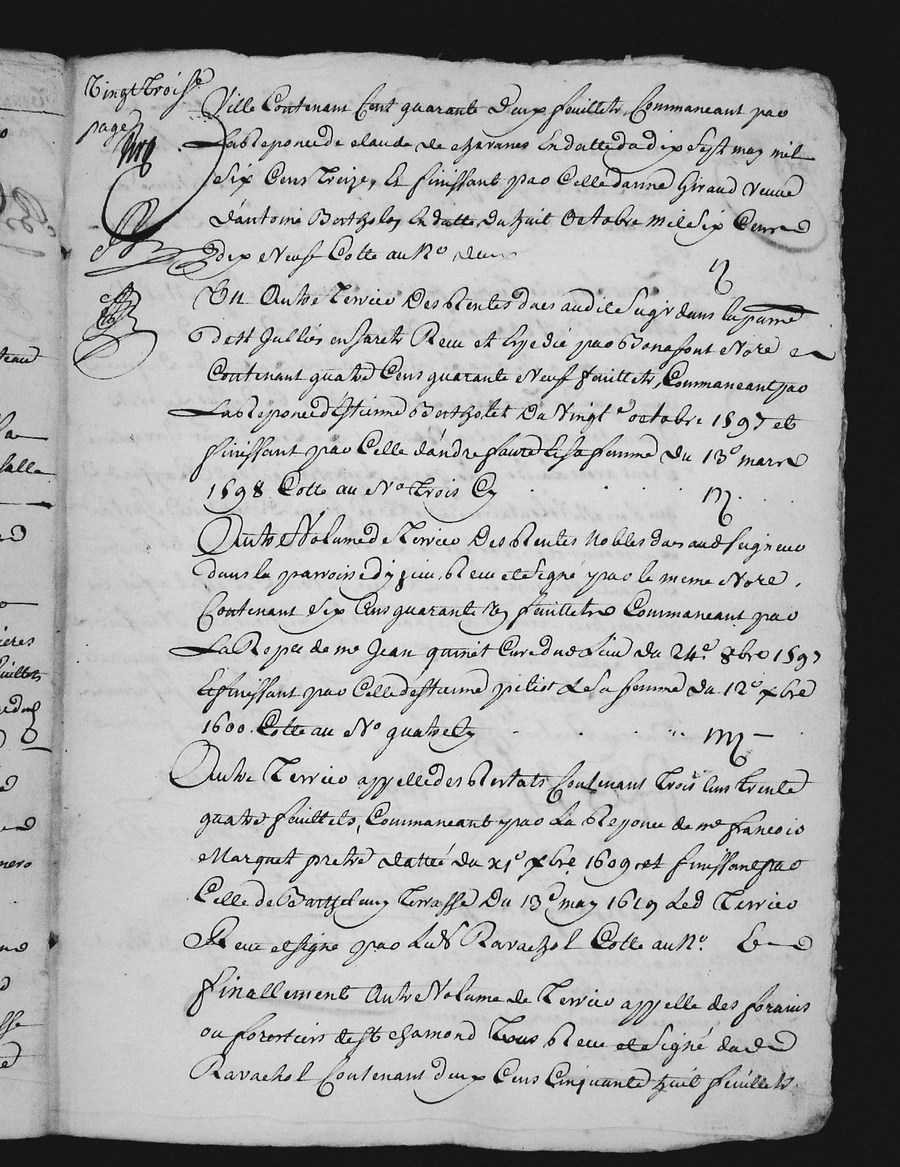 Vingt troise
page
Ville Contenant Cent quarante deux feuillets, Commaneant par
La Reponce de claude de chavanes En datte du dix sept may mil
six Cens treize, Et finissant par Celle danne Giraud veuve
d'antoine Bertholey En datte, du huit Octobre Mil Six Cens
dix Neuf Cotte au No. deux
Un Autre Terrier Des Rentes dues audit Seigr dans la parre
de St Jullies en Jarets Receu et Expedié par Bonafont Nore
Contenant quatre Cens quarante Neuf feuillets, Commaneant par
La Reponce d'Estienne Bertholet Du Vingt e octobre 1597 et
finissant par Celle d'andre faure Et sa femme du 13e mars
1598 Cotte au No Trois Cy
Autre Volume de Terrier Des Rentes Nobles dues aud Seigneur
dans la parroisse d'yzieu, Receu et Signé par le meme Nore.
Contenant Six Cens quarante feuillets Commaneant par
La Repce de me Jean quinet Cure dud Lieu du 24e 8bre 1597
Et finissant par Celle d'estienne pitiot & sa femme du 12e xbre
1600 Cotte au No quatre Cy
Autre Terrier appellé des Contenant Trois Cens trente
quatre feuillets, Commaneant par La Reponce de me francois
Marquet pretre datteé du xbre 1609 et finissant par
Celle de Barthelemy Terrasse Du 13e may 1619 Led Terrier
Receu et signe par Lud Ravachol Cotte au No.
finallement Autre Volume de Terrier appellé des forains
ou forestiers de St chamond Tous Receu et Signé dud
Ravachol Contenant deux Cens Cinquante huit feuillets